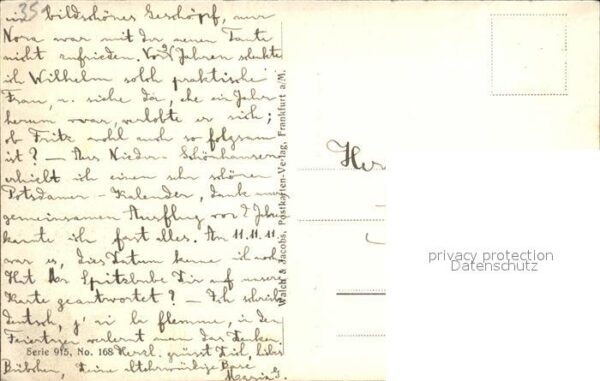 35
ein bildschönes Geschöpf, nur
Nora war mit der neuen Tante
nicht zufrieden. Vor 2 Jahren schenkte
ich Wilhelm solch praktische
Frau, u. siehe da, ehe ein Jahr
herum war, verlobte er sich;
ob Fritz wohl auch so folgsam
ist? – Aus Nieder-Schönhausen
erhielt ich einen sehr schönen
Potsdamer-Kalender, dank uns.
gemeinsamen Ausflug vor 2 Jahr.
kannte ich fast alles. Am 11.11.11
war es, dies Datum kenne ich noch.
Hat Mr Spitzbube Dir auf unsere
Karte geantwortet? – Ich schreibe
deutsch, j'ai la flemme, in den
Feiertagen verlernt man das Denken.
Serie 915, No. 168 Herzl. grüsst Dich, liebes
Bübchen, Deine altehrwürdige Base
Maria G.
Walch & Jacobs, Postkarten-Verlag, Frankfurt a/M.
Her
privacy protection
Datenschutz